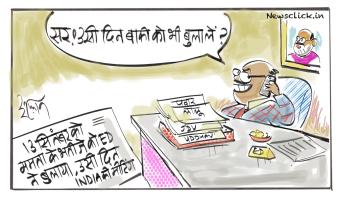 Newsclick.in
सर! उसी दिन बाकी को भी बुला लें?
इरफ़ान
पवार
लालू
JDU
UDDHAV
ED
13 सितंबर को
ममता के भतीजे को ED
ने बुलाया, उसी दिन
INDIA की मीटिंग